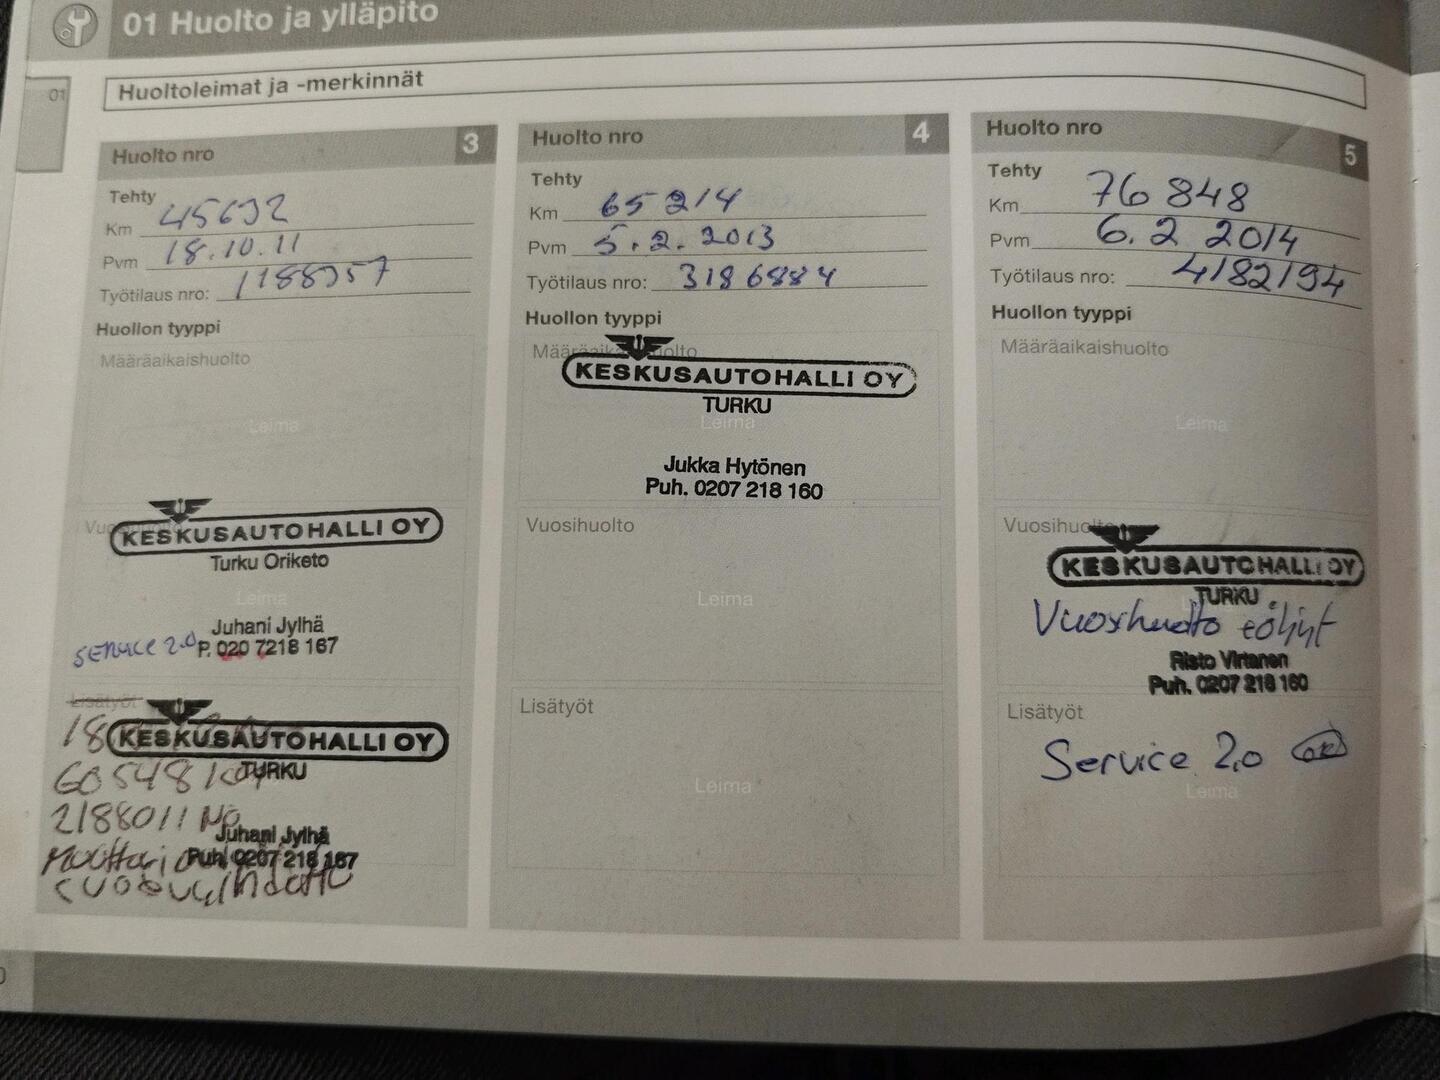 01 Huolto ja ylläpito
01
Huoltoleimat ja -merkinnät
Huolto nro 3
Tehty
Km 45632
Pvm 18.10.11
Työtilaus nro: 1188357
Huollon tyyppi
Määräaikaishuolto
Leima
Vuosihuolto
KESKUSAUTOHALLI OY
Turku Oriketo
Leima
Juhani Jylhä
SERVICE 2.0 P. 020 7218 167
Lisätyöt
18
KESKUSAUTOHALLI OY
60548 km
TURKU
2188011 No
Juhani Jylhä
Moottori
Puh. 0207 218 167
Huolto nro 4
Tehty
Km 65 214
Pvm 5.2.2013
Työtilaus nro: 3186884
Huollon tyyppi
Määräaikaishuolto
KESKUSAUTOHALLI OY
TURKU
Leima
Jukka Hytönen
Puh. 0207 218 160
Vuosihuolto
Leima
Lisätyöt
Leima
Huolto nro 5
Tehty
Km 76 848
Pvm 6.2 2014
Työtilaus nro: 4182194
Huollon tyyppi
Määräaikaishuolto
Leima
Vuosihuolto
KESKUSAUTOHALLI OY
TURKU
Vuosihuolto
Risto Virtanen
Puh. 0207 218 160
Lisätyöt
Service 2.0 ok
Leima
0